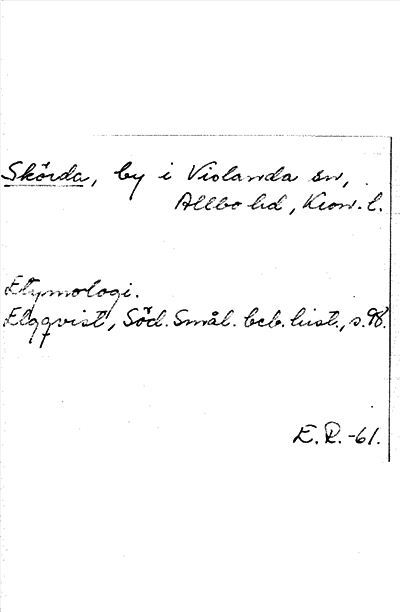 Skörda, by i Vislanda sn,
Allbo hd, Kron. l.
Etymologi.
Elgqvist, Söd. Smål. beb. hist., s. 98.
E. R. -61.